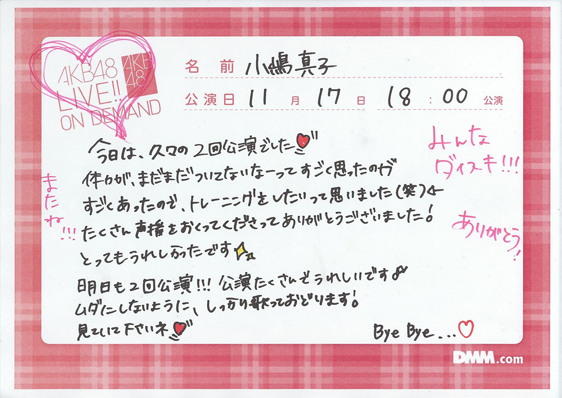 AKB48
LIVE!!
ON DEMAND
AKB
48
名前 小嶋真子
公演日 11月17日 18:00公演
今日は、久々の2回公演でした
体力が、まだまだついてないなーってすごく思ったのが
すごくあったので、トレーニングをしたいって思いました(笑)←
たくさん声援をおくってくださってありがとうございました!
とってもうれしかったです
明日も2回公演!!! 公演たくさんでうれしいです
ムダにしないように、しっかり歌っておどります!
見ていて下さいネ
Bye Bye...
みんな
ダイスキ!!!
ありがとう!
またね!!!
DMM.com